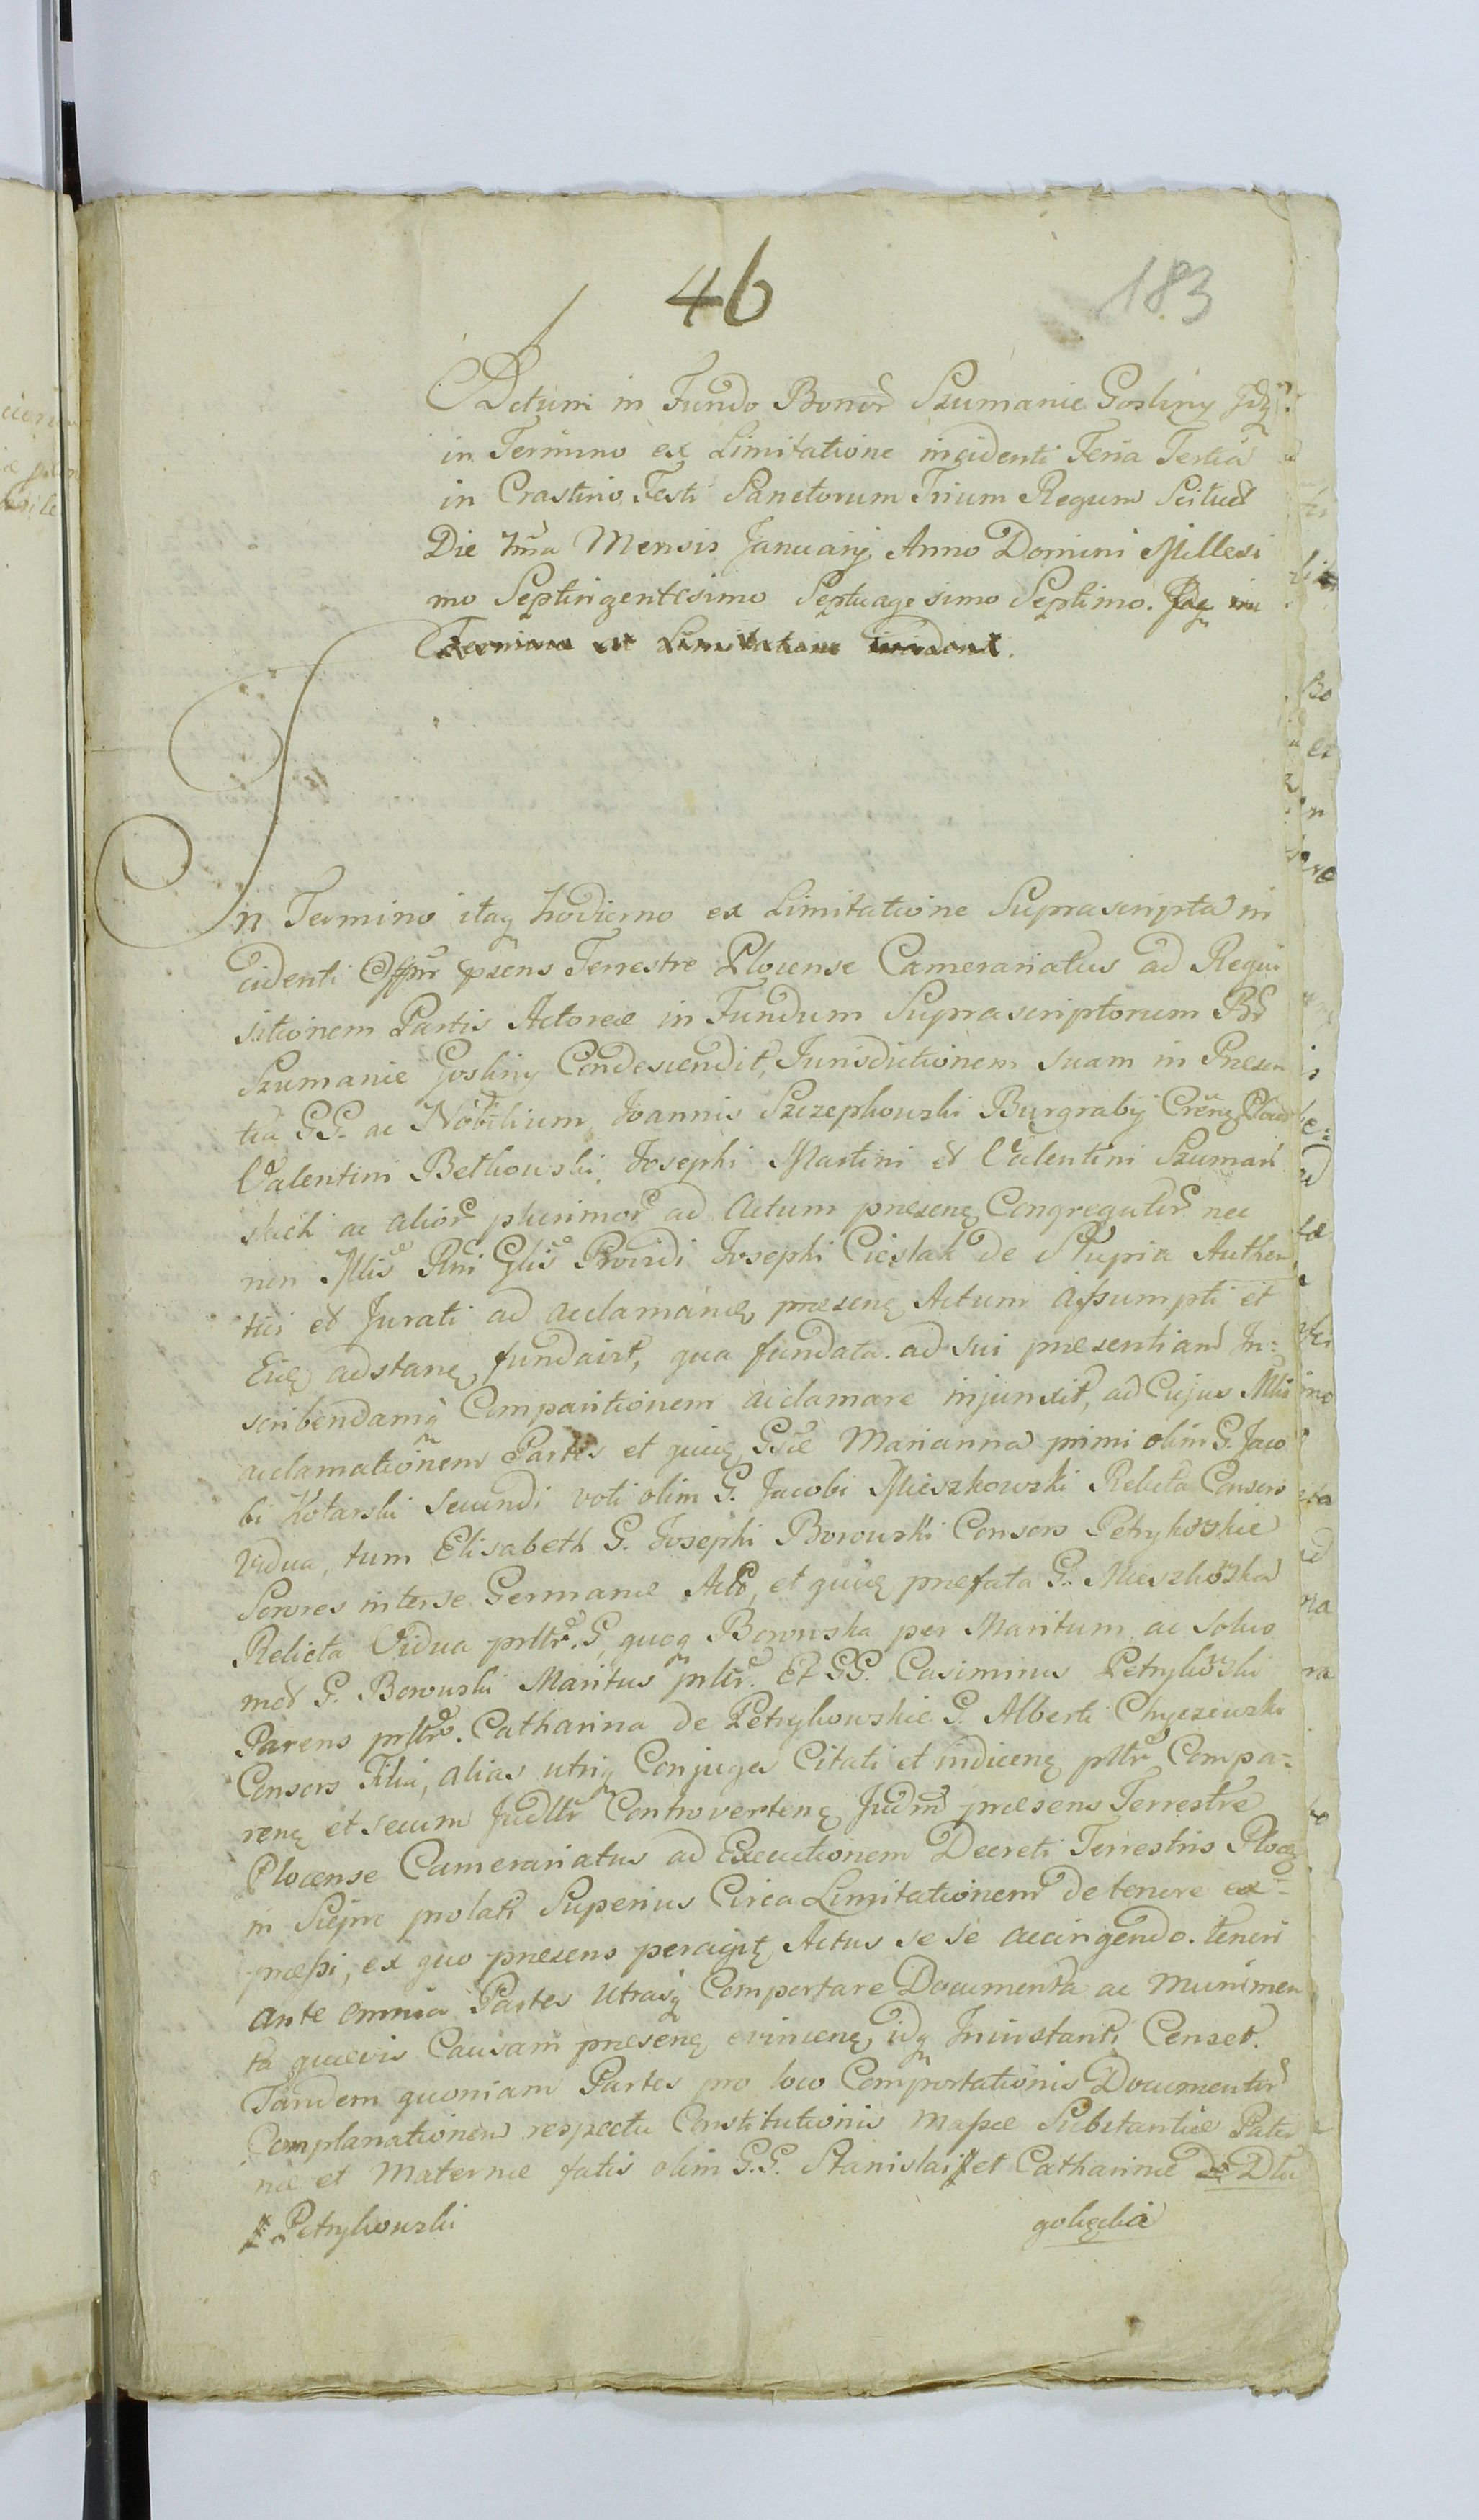 46
183
Actum in Fundo Bonor Szumanie Gosliny Idq
in Termino ex Limitatione incidenti Feria Tertia
in Crastino Festi Sanctorum Trium Regum Scilict
Die 7ma Mensis Januarij Anno Domini Millesi
mo Septingentesimo Septuagesimo Septimo. Idq in
Termino ex Limitatione incident.
In Termino itaq hodierno ex Limitatione Suprascripta in
cidenti Offm prsens Terrestre Plocense Camerariatus ad Requi
sitionem Partis Actoreæ in Fundum Suprascriptorum Br
Szumanie Gosliny Condescendit, Jurisdictionem suam in Præsen
tia GG. ac Nobilium Joannis Szczepkowski Burgrabij Crens
Valentini Betkowski, Josephi Martini et Valentini Szumań
skich ac alior plurimor ad Actum præsenę Congregator nec
non Mlis Rni Glis Providi Josephi Cieslak de Słupia Authen
tici et Jurati ad acclamandę præsenę Actum assumpti et
Eidę adstanę, fundavit, qua fundata ad sui præsentiam In=
scribendamq Comparitionem acclamare injunxit, ad Cujus Mlis
acclamationem Partes et quidę Gsæ Marianna primi olim G. Jaco
bi Kotarski secundi voti olim G. Jacobi Mieszkowski Relicta Consors
Vidua, tum Elisabeth G. Josephi Borowski Consors Petrykoskie
Sorores inter se Germanæ Act, et quidę præfata G. Mieszkoska
Relicta Vidua prltr. G. quoq Borowska per Maritum ac Solus
met G. Borowski Maritus prltr. Et GG. Casimirus Petrykoski
Parens prltr. Catharina de Petrykowskie G. Alberti Chyczewski
Consors Filia, alias utriq Conjuges Citati et indicenę pltr Compa=
renę et secum Judltr Controvertenę Judm præsens Terrestre
Plocense Camerariatus ad Executionem Decreti Terrestris Plocę
in Sieprc prolati Superius Circa Limitationem de tenore ex=
præssi, ex quo præsens peragit Actus se se accingendo. teneri
ante omnia Partes Utrasq Comportare Documenta ac Munimen
ta quævis Causam præsenę evincenę, idq Ininstanti Censet.
Tandem quoniam Partes pro loco Comportationis Documentor
Complanationem respectu Constitutionis Massæ Substantiæ Pater
næ et Maternæ fatis olim G.G. Stanislai # et Catharinæ de Dłu
# Petrykowski
golięckia